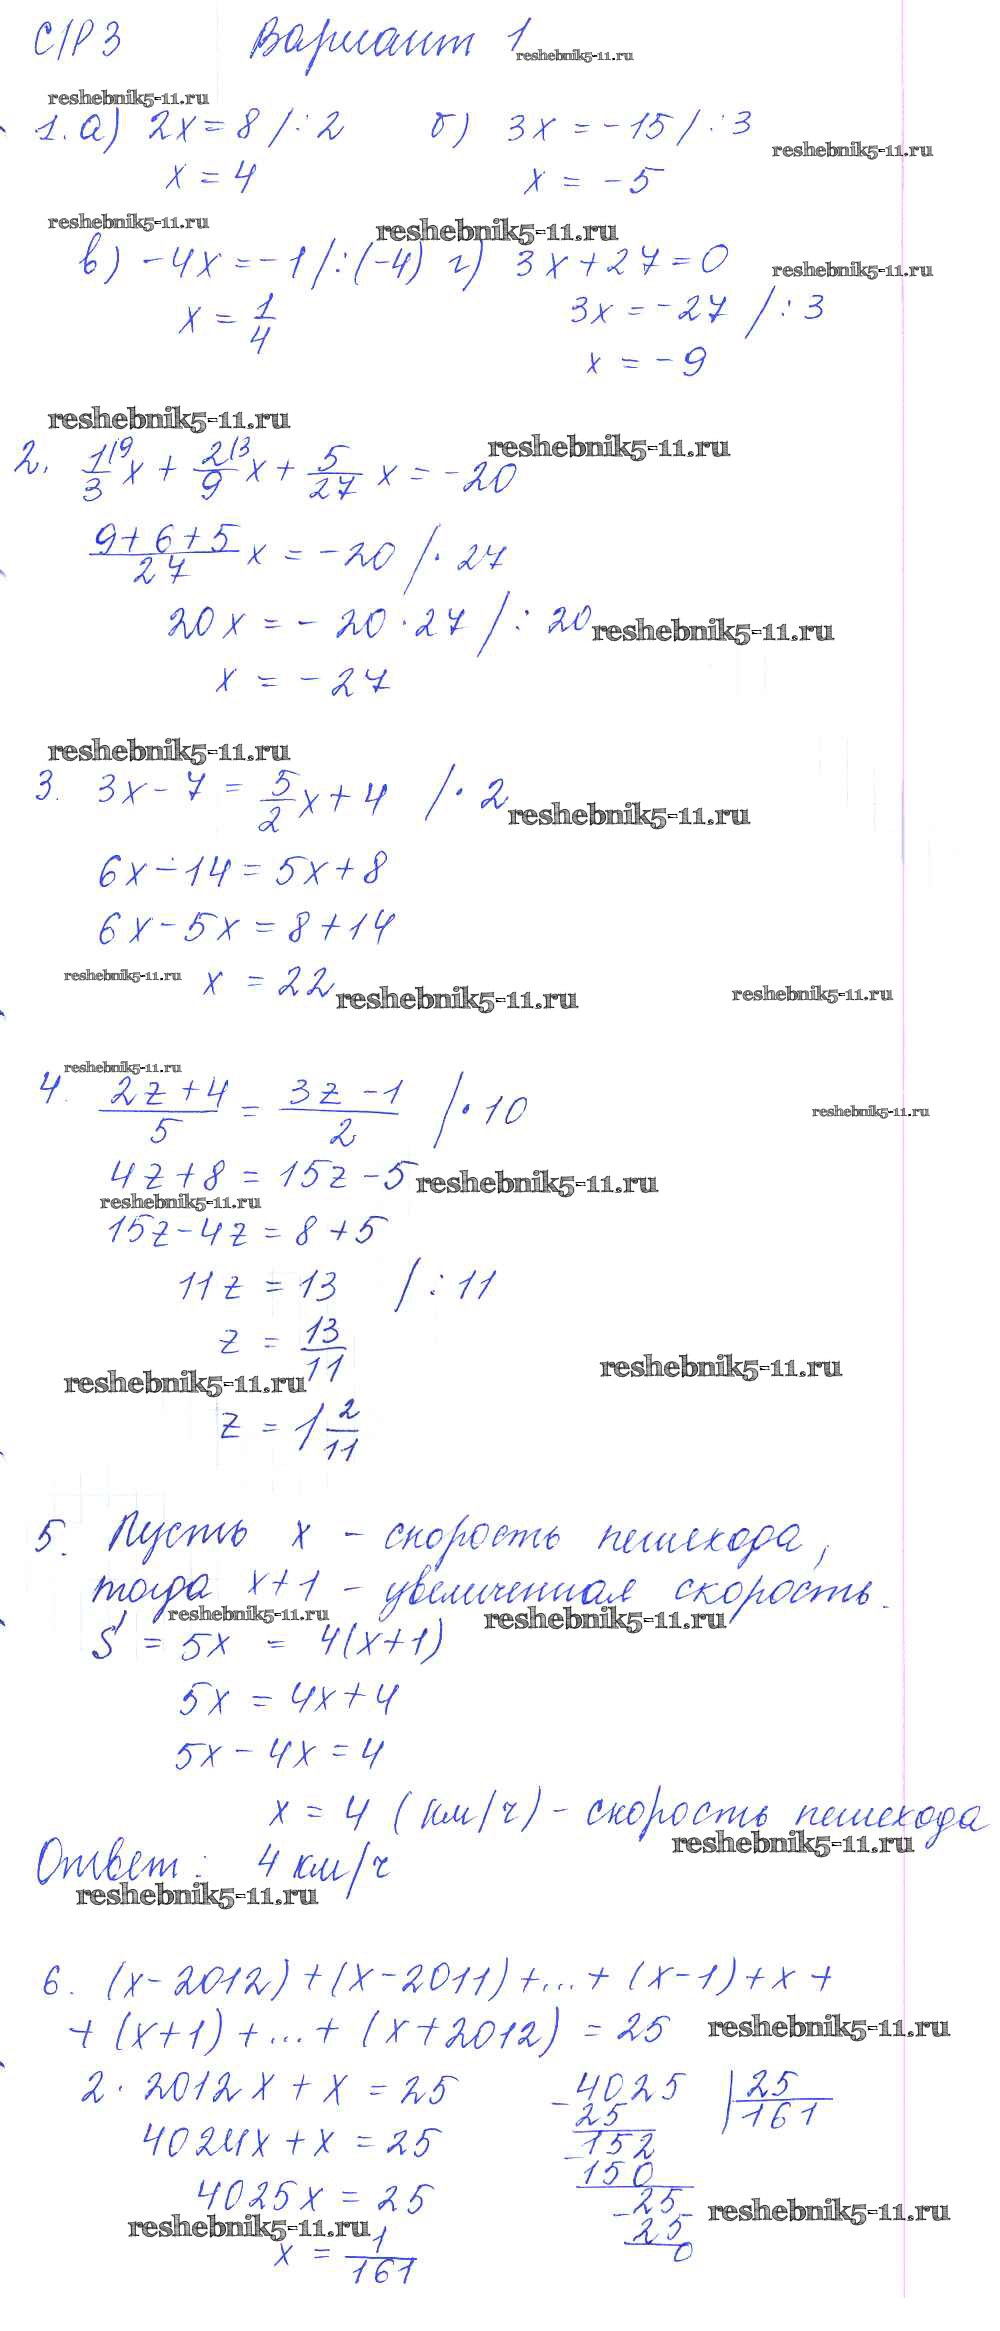 С/Р 3 Вариант 1
reshebnik5-11.ru
reshebnik5-11.ru
1. а) 2x = 8 /:2 б) 3x = -15 /:3
reshebnik5-11.ru
x = 4 x = -5
reshebnik5-11.ru reshebnik5-11.ru
в) -4x = -1 /:(-4) г) 3x + 27 = 0
reshebnik5-11.ru
x = 1/4 3x = -27 /:3
x = -9
reshebnik5-11.ru
reshebnik5-11.ru
2. 1/3 |9 x + 2/9 |3 x + 5/27 x = -20
(9+6+5)/27 x = -20 /· 27
20x = -20·27 /: 20
reshebnik5-11.ru
x = -27
reshebnik5-11.ru
3. 3x - 7 = 5/2 x + 4 /· 2
reshebnik5-11.ru
6x - 14 = 5x + 8
6x - 5x = 8 + 14
reshebnik5-11.ru x = 22 reshebnik5-11.ru reshebnik5-11.ru
reshebnik5-11.ru
4. (2z+4)/5 = (3z-1)/2 /· 10
reshebnik5-11.ru
4z + 8 = 15z - 5 reshebnik5-11.ru
reshebnik5-11.ru
15z - 4z = 8 + 5
11z = 13 /: 11
z = 13/11
reshebnik5-11.ru reshebnik5-11.ru
z = 1 2/11
5. Пусть x - скорость пешехода,
тогда x+1 - увеличенная скорость.
reshebnik5-11.ru reshebnik5-11.ru
S = 5x = 4(x+1)
5x = 4x + 4
5x - 4x = 4
x = 4 (км/ч) - скорость пешехода
reshebnik5-11.ru
Ответ: 4 км/ч
reshebnik5-11.ru
6. (x-2012) + (x-2011) +...+ (x-1) + x +
+ (x+1) +...+ (x+2012) = 25 reshebnik5-11.ru
2·2012x + x = 25 -4025 |25
25 161
4024x + x = 25 -152
150
4025x = 25 -25 reshebnik5-11.ru
reshebnik5-11.ru 25
x = 1/161 0